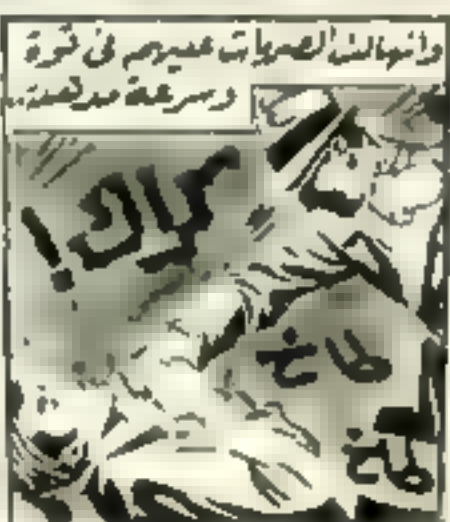 وانهالت الضربات عليهم فى قوة
وسرعة مدهشة..
كراك!
طاخ
طاخ